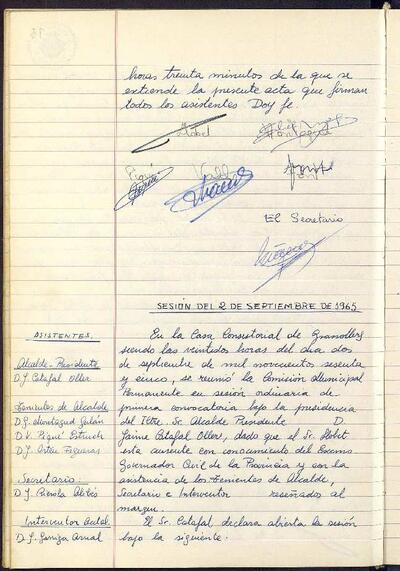 horas treinta minutos de la que se
extiende la presente acta que firman
todos los asistentes Doy fe.
Llobet
Piqué
Vall
El Secretario
SESIÓN DEL 2 DE SEPTIEMBRE DE 1965
ASISTENTES.
Alcalde-Presidente
D. J. Catafal Oller
Tenientes de Alcalde
D. G. Montagud Galán
D. V. Piqué Estruch
D. J. Ortas Figueras
Secretario:
D. J.
Interventor Actal.
D. J. Garriga Arnal
En la Casa Consistorial de Granollers
siendo las veintidos horas del dia dos
de septiembre de mil novecientos sesenta
y cinco, se reunió la Comisión Municipal
Permanente en sesión ordinaria de
primera convocatoria bajo la presidencia
del Iltre. Sr. Alcalde Presidente D.
Jaime Catafal Oller, dado que el Sr. Llobet
esta ausente con conocimiento del Excmo.
Governador Civil de la Provincia y con la
asistencia de los Tenientes de Alcalde,
Secretario e Interventor reseñados al
margen.
El Sr. Catafal declara abierta la sesión
bajo la siguiente.